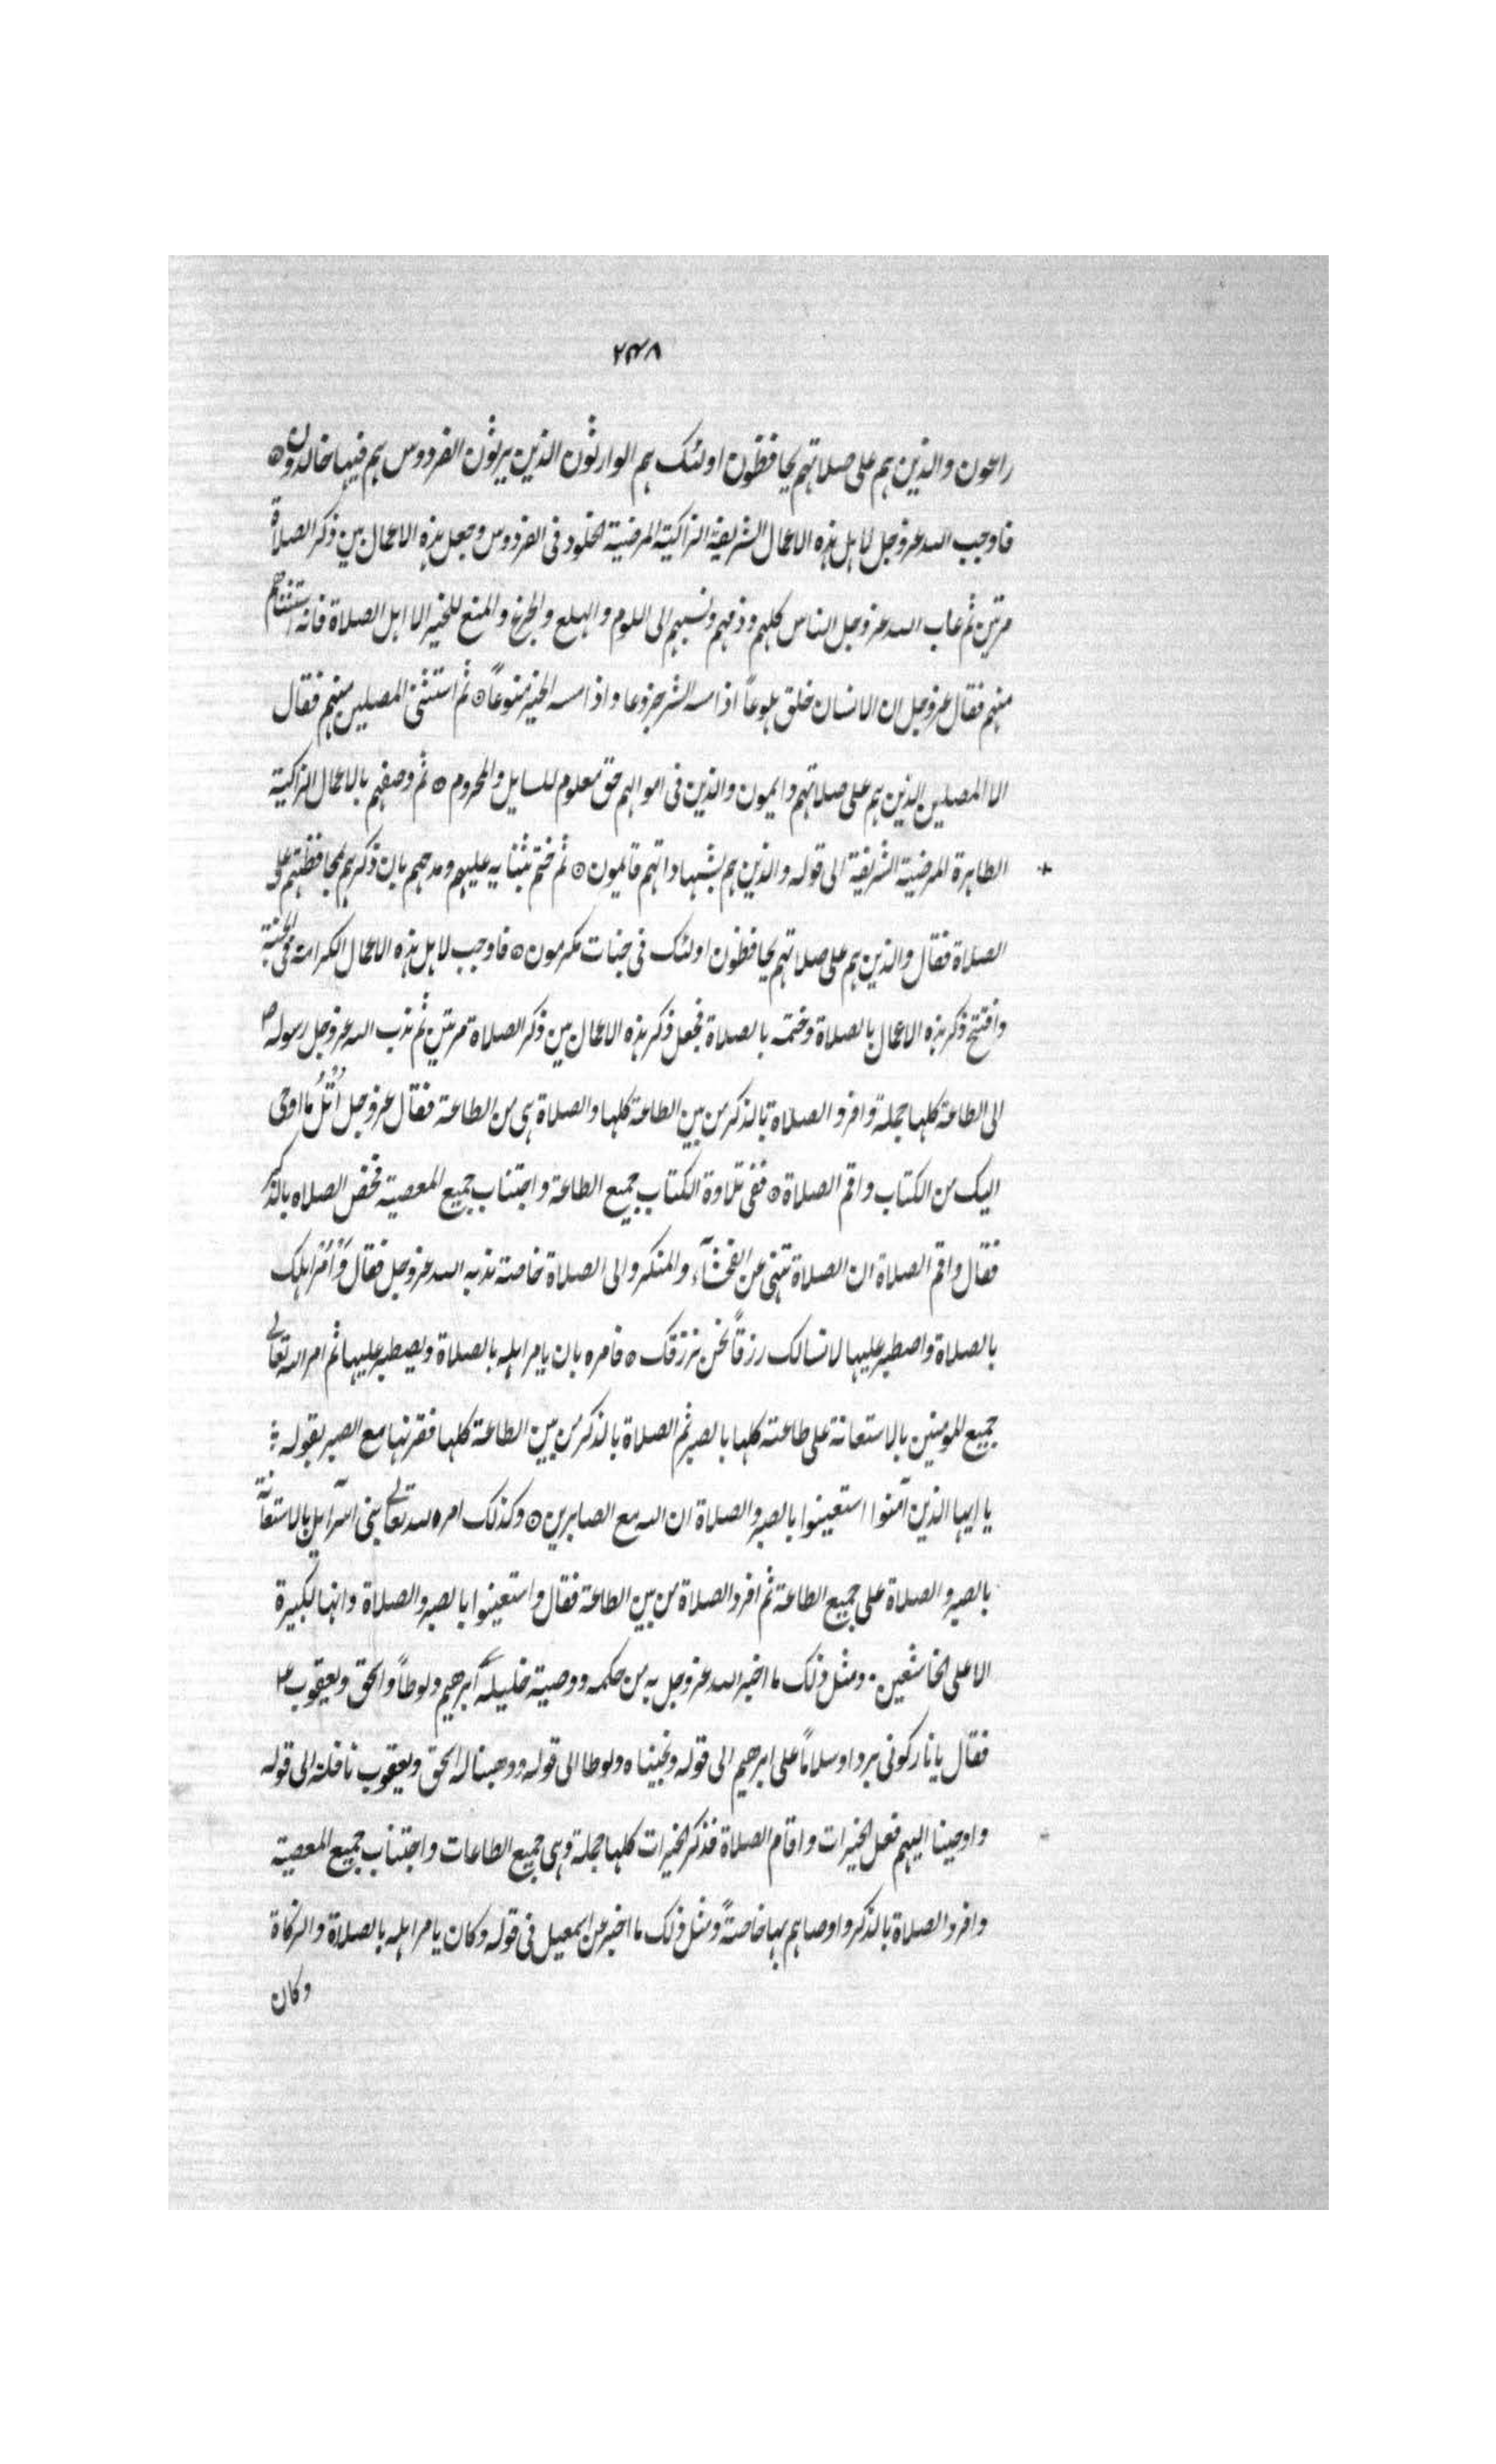 ٢٣٨
راعون والذين هم على صلاتهم يحافظون اولئك هم الوارثون الذين يرثون الفردوس هم فيها خالدون ۞
فاوجب الله عز وجل لاهل هذه الاعمال الشريفة الزاكية المرضية الخلود فى الفردوس وجعل هذه الاعمال بين ذكر الصلاة
مرتين ثم عاب الله عز وجل الناس كلهم وذمهم ونسبهم الى اللوم والهلع والجزع والمنع للخير الا اهل الصلاة فانه استثناهم
منهم فقال عز وجل ان الانسان خلق هلوعاً اذا مسه الشر جزوعا واذا مسه الخير منوعاً ۞ ثم استثنى المصلين منهم فقال
الا المصلين الذين هم على صلاتهم دايمون والذين فى اموالهم حق معلوم للسايل والمحروم ۞ ثم وصفهم بالاعمال الزاكية
الطاهرة المرضية الشريفة الى قوله والذين هم بشهاداتهم قايمون ۞ ثم ختم بثنايه عليهم ومدحهم بان ذكرهم بمحافظتهم على
الصلاة فقال والذين هم على صلاتهم يحافظون اولئك فى جنات مكرمون ۞ فاوجب لاهل هذه الاعمال الكرامة فى الجنة
وافتتح ذكر هذه الاعمال بالصلاة وختمه بالصلاة فجعل ذكر هذه الاعمال بين ذكر الصلاة مرتين ثم ندب الله عز وجل رسوله ص
الى الطاعة كلها جملة وافرد الصلاة بالذكر من بين الطاعة كلها والصلاة هى من الطاعة فقال عز وجل اُتْلُ ما اوحى
اليك من الكتاب واقم الصلاة ۞ ففى تلاوة الكتاب جميع الطاعة واجتناب جميع المعصية فخص الصلاه بالذكر
فقال واقم الصلاة ان الصلاة تنهى عن الفحشآء والمنكر والى الصلاة خاصة ندبه الله عز وجل فقال وَأْمُرْ اهلك
بالصلاة واصطبر عليها لا نسالك رزقاً نحن نرزقك ۞ فامره بان يامر اهله بالصلاة ويصطبر عليها ثم امر الله تعالى
جميع المومنين بالاستعانة على طاعته كلها بالصبر ثم الصلاة بالذكر من بين الطاعة كلها فقرنها مع الصبر بقوله ؛
يا ايها الذين آمنوا استعينوا بالصبر والصلاة ان الله مع الصابرين ۞ وكذلك امر الله تعالى بنى اسرآيل بالاستعانة
بالصبر والصلاة على جميع الطاعة ثم افرد الصلاة من بين الطاعة فقال واستعينوا بالصبر والصلاة وانها لكبيرة
الا على الخاشعين . ومثل ذلك ما اخبر الله عز وجل به من حكمه ووصية خليله ابرهيم ولوطاً واسحق ويعقوب ع
فقال يا نار كونى بردا وسلاماً على ابرهيم الى قوله ونجيناه ولوطا الى قوله ووهبنا له اسحق ويعقوب نافلة الى قوله
واوحينا اليهم فعل الخيرات واقام الصلاة فذكر الخيرات كلها جملة وهى جميع الطاعات واجتناب جميع المعصية
وافرد الصلاة بالذكر واوصاهم بها خاصةً ومثل ذلك ما اخبر عن اسمعيل فى قوله وكان يامر اهله بالصلاة والزكاة
وكان